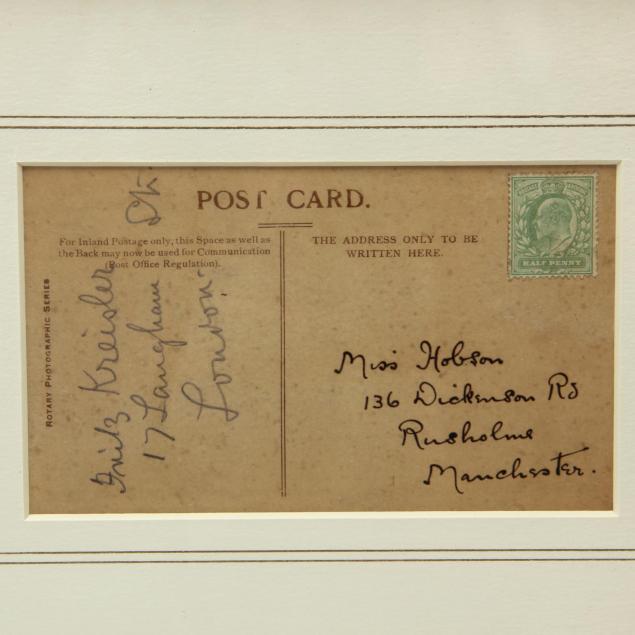 POST CARD.
For Inland Postage only, this Space as well as
the Back may now be used for Communication
(Post Office Regulation).
THE ADDRESS ONLY TO BE
WRITTEN HERE.
ROTARY PHOTOGRAPHIC SERIES
Fritz Kreisler
17 Langham St.
London.
HALF PENNY
Miss Hobson
136 Dickenson Rd
Rusholme
Manchester.